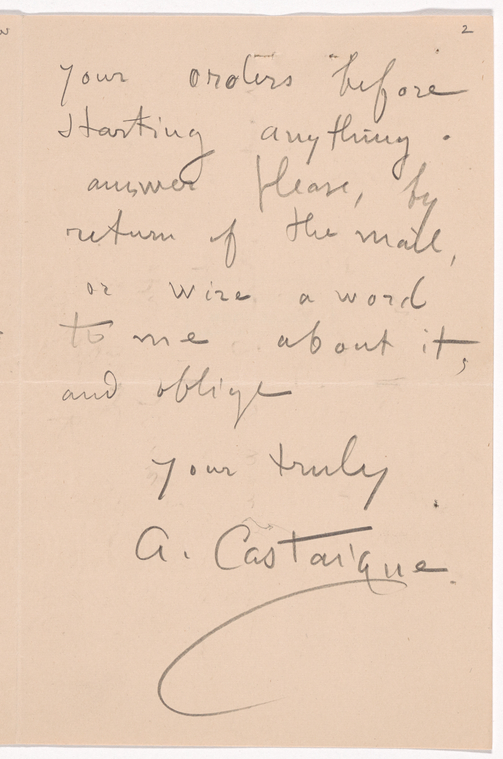 2
your orders before
starting anything.
answer please, by
return of the mail,
or wire a word
to me about it,
and oblige
your truly
A. Castaigne.